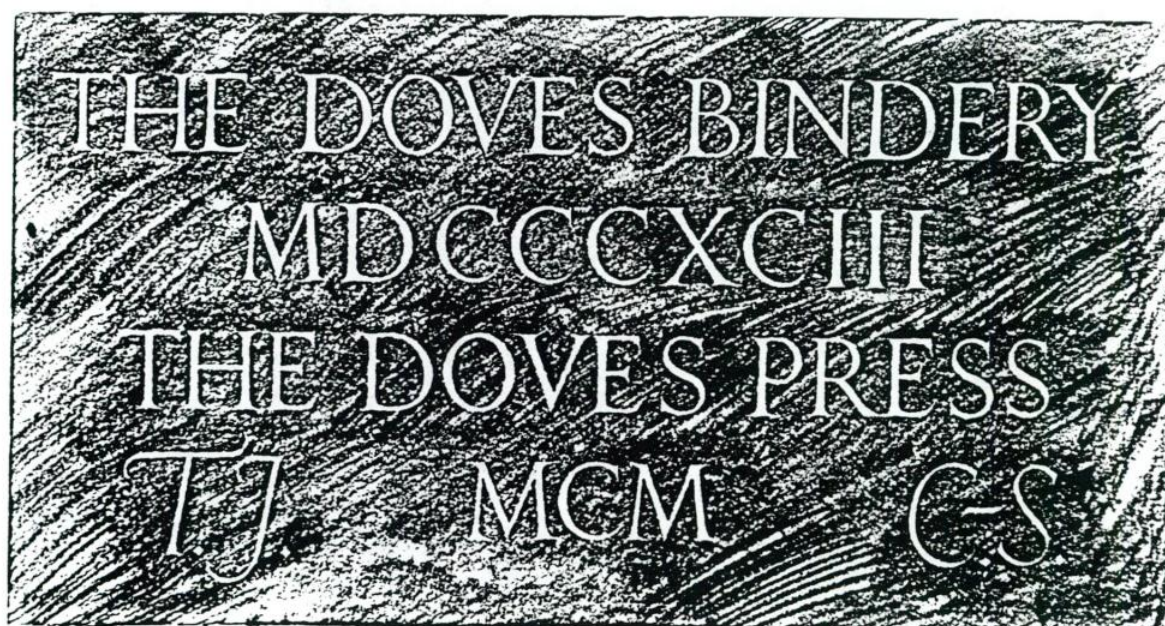 THE DOVES BINDERY
MDCCCXCIII
THE DOVES PRESS
TJ MCM C-S